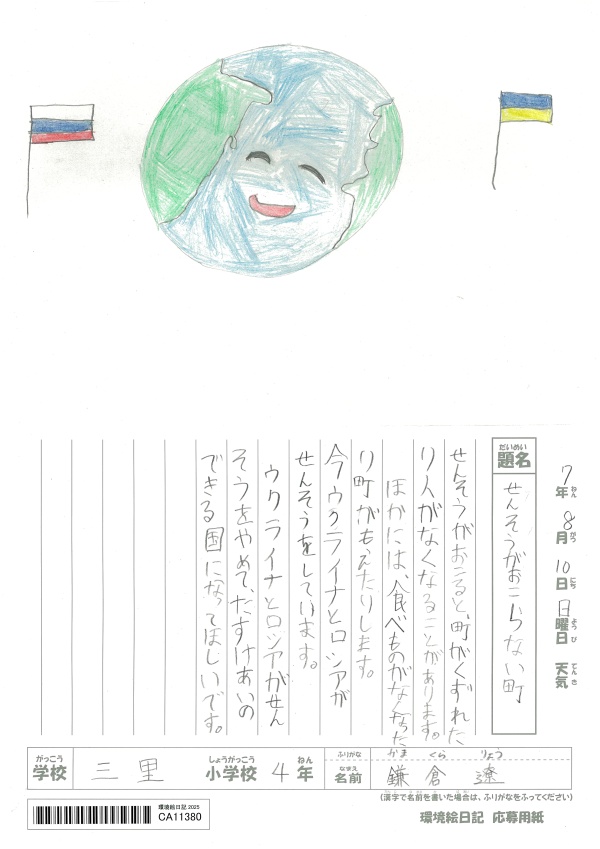 7年ねん 8月がつ 10日にち 日曜日ようび 天気てんき
題名だいめい せんそうがおこらない町
せんそうがおこると、町がくずれた
り人がなくなることがあります。
ほかには、食べものがなくなった
り町がもえたりします。
今ウクライナとロシアが
せんそうをしています。
ウクライナとロシアがせん
そうをやめて、たすけあいの
できる国になってほしいです。
がっこう しょうがっこう ねん ふりがな かま くら りょう
学校 三里 小学校 4年 なまえ 名前 鎌倉 遼
(漢字で名前を書いた場合は、ふりがなをふってください)
環境絵日記 2025
CA11380
環境絵日記 応募用紙